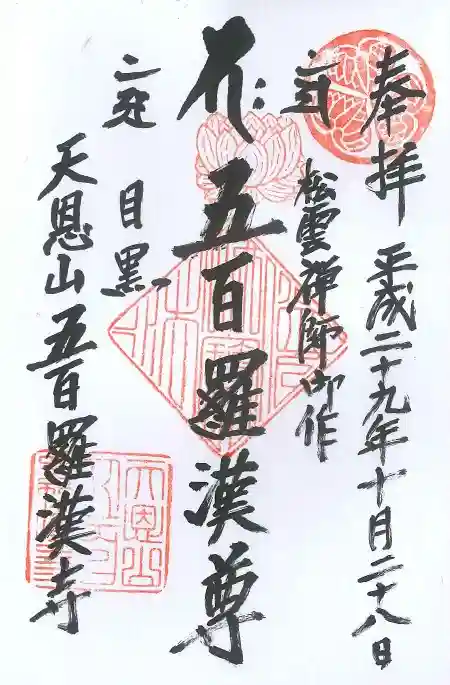 奉拝 平成二十九年十月二十八日
松雲禅師御作
五百羅漢尊
目黒
天恩山五百羅漢寺